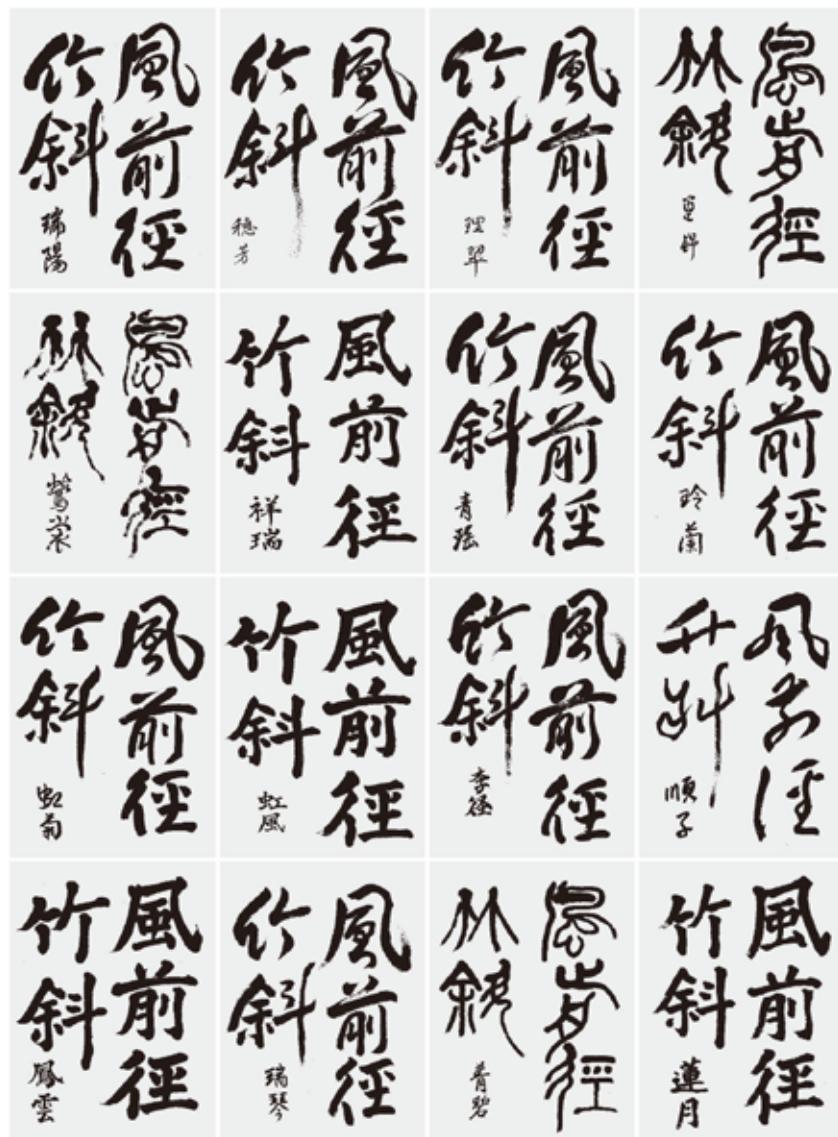 風前徑
竹斜
瑞陽
風前徑
竹斜
穂芳
風前徑
竹斜
理翠
風前徑
竹斜
風前徑
竹斜
鶯裳
風前徑
竹斜
祥瑞
風前徑
竹斜
青瑶
風前徑
竹斜
玲蘭
風前徑
竹斜
虹菊
風前徑
竹斜
虹風
風前徑
竹斜
李徑
風前徑
竹斜
順子
風前徑
竹斜
鳳雲
風前徑
竹斜
瑞琴
風前徑
竹斜
青碧
風前徑
竹斜
蓮月